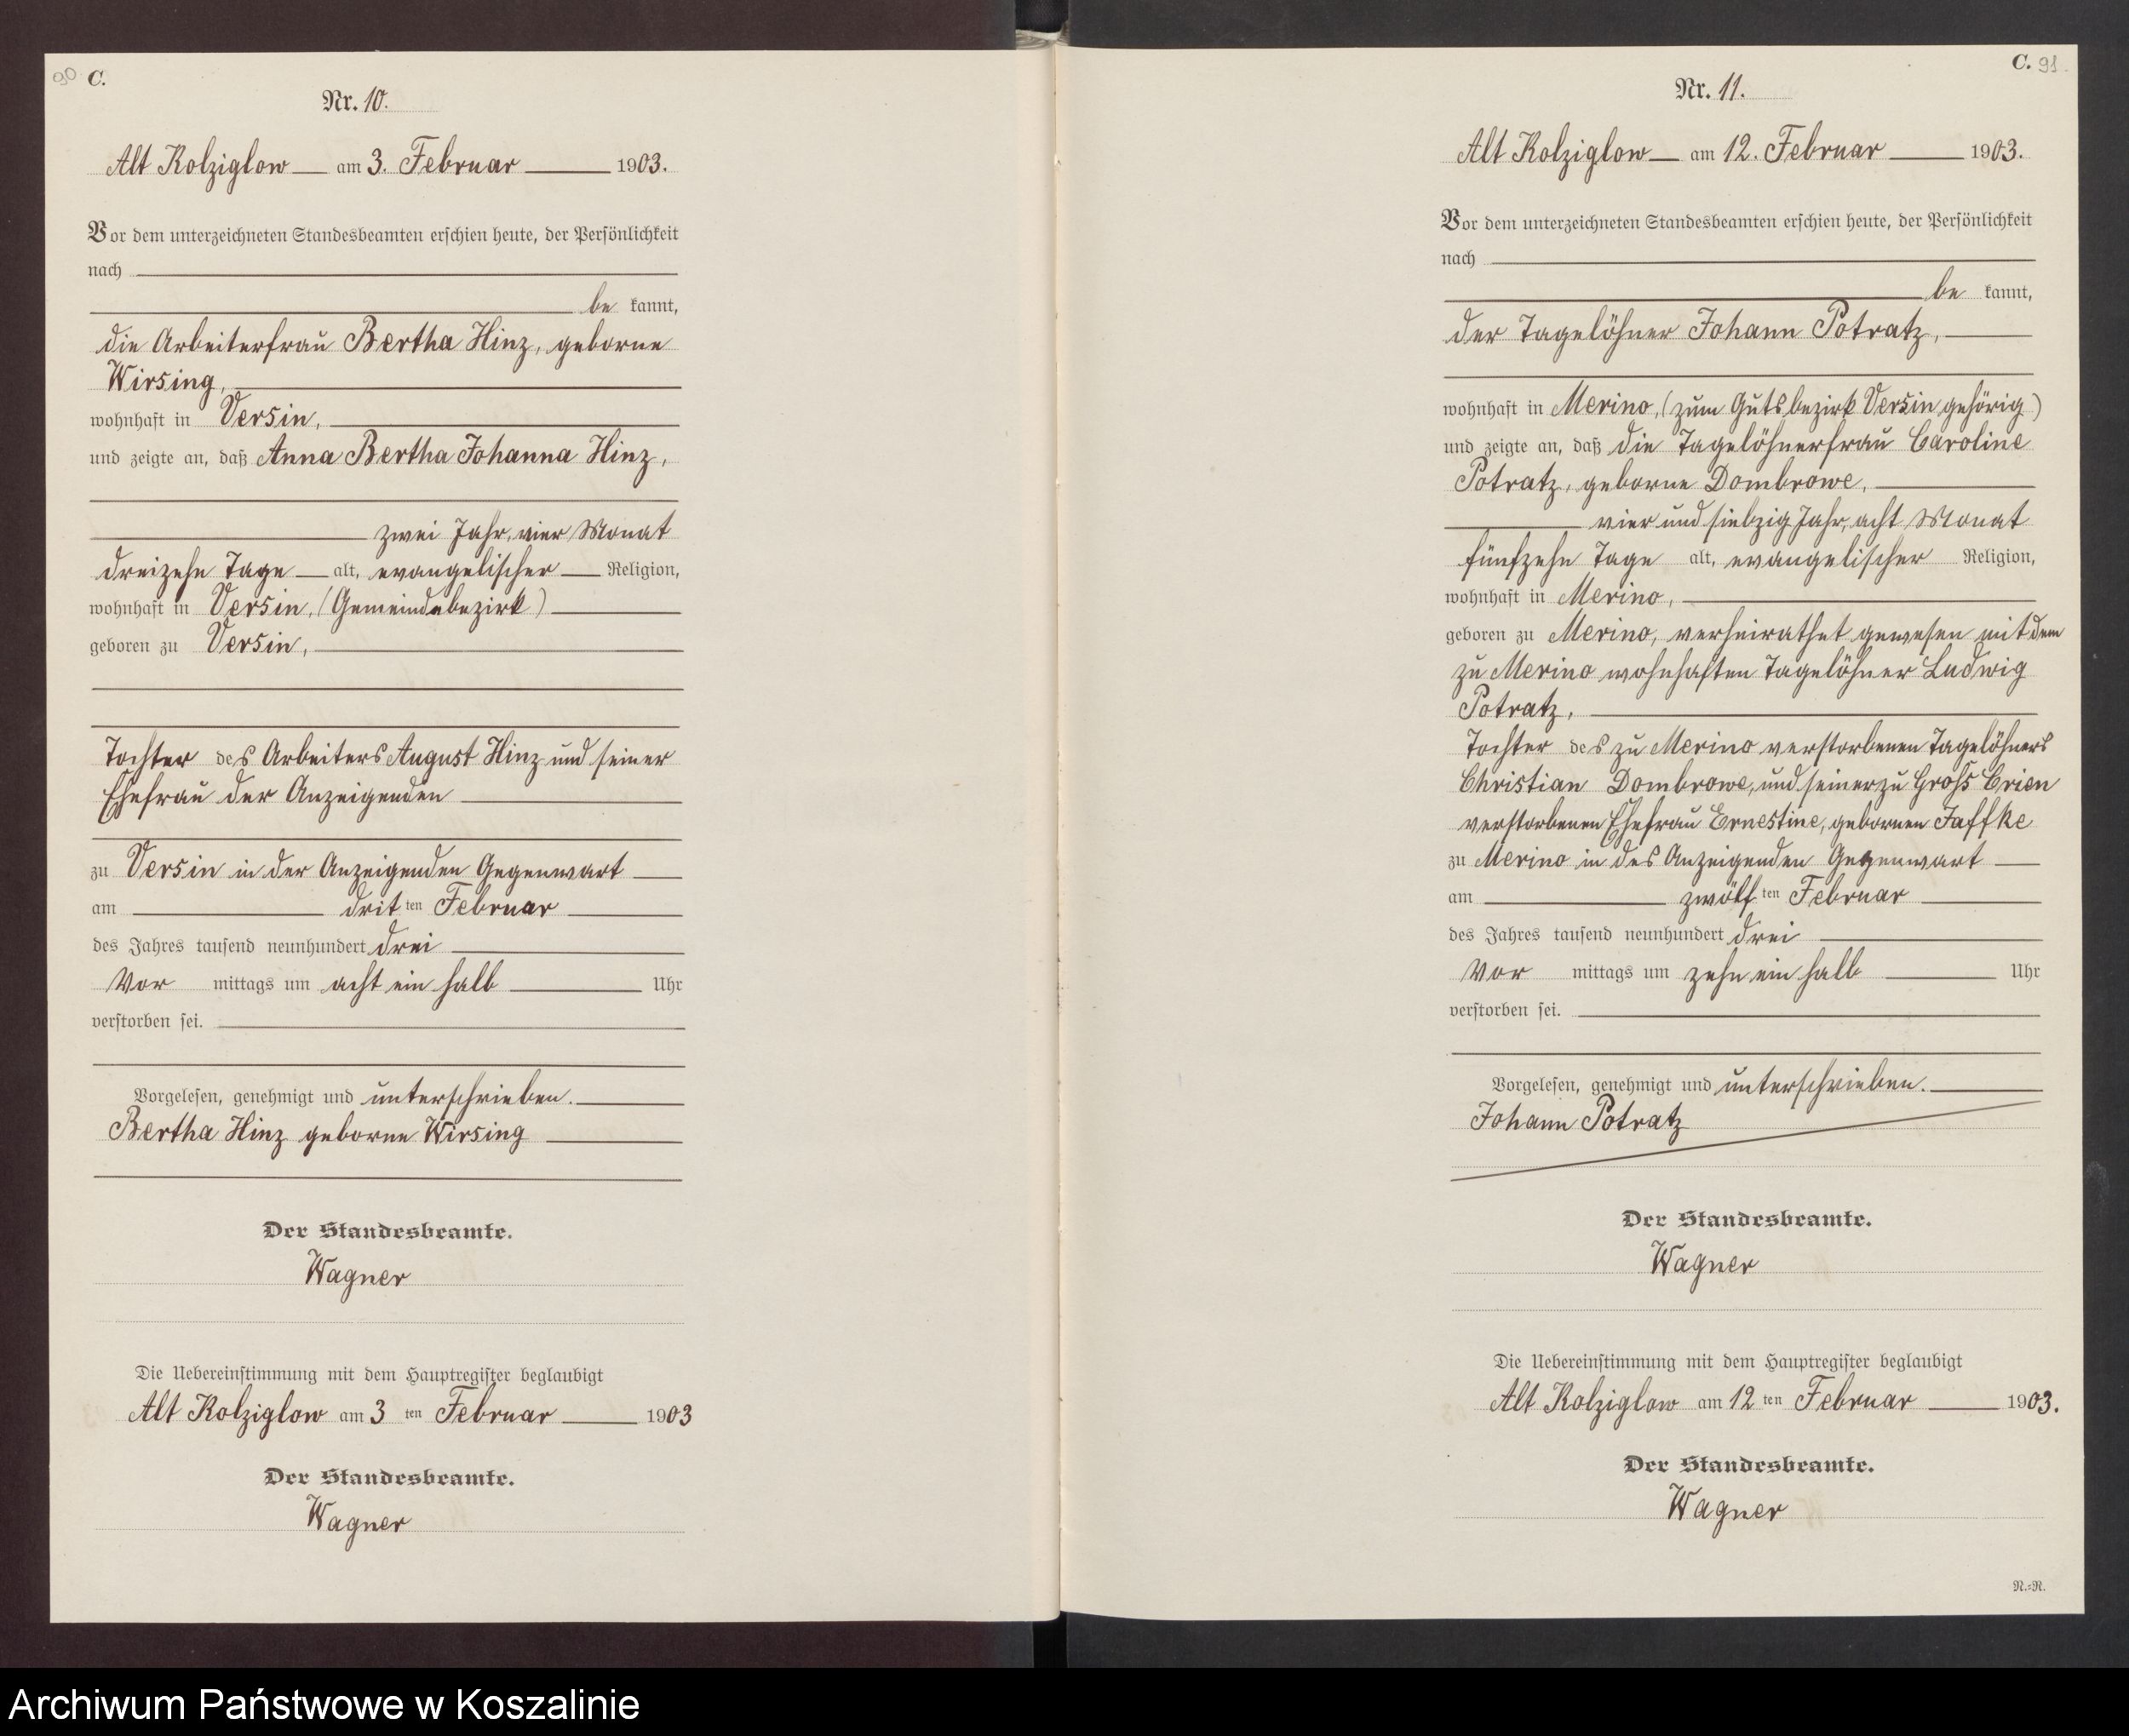 90 C.
Nr. 10.
Alt Kolziglow am 3. Februar 1903.
Vor dem unterzeichneten Standesbeamten erschien heute, der Persönlichkeit
nach
be kannt,
die Arbeiterfrau Bertha Hinz, geborne
Wirsing,
wohnhaft in Versin,
und zeigte an, daß Anna Bertha Johanna Hinz,
zwei Jahr, vier Monat
dreizehn Tage alt, evangelischer Religion,
wohnhaft in Versin, (Gemeindebezirk)
geboren zu Versin,
Tochter des Arbeiters August Hinz und seiner
Ehefrau der Anzeigenden
zu Versin in der Anzeigenden Gegenwart
am drit ten Februar
des Jahres tausend neunhundert drei
Vor mittags um acht ein halb Uhr
verstorben sei.
Vorgelesen, genehmigt und unterschrieben.
Bertha Hinz geborne Wirsing
Der Standesbeamte.
Wagner
Die Uebereinstimmung mit dem Hauptregister beglaubigt
Alt Kolziglow am 3 ten Februar 1903
Der Standesbeamte.
Wagner
C. 91.
Nr. 11.
Alt Kolziglow am 12. Februar 1903.
Vor dem unterzeichneten Standesbeamten erschien heute, der Persönlichkeit
nach
be kannt,
der Tagelöhner Johann Potratz,
wohnhaft in Merino, (zum Gutsbezirk Versin gehörig)
und zeigte an, daß die Tagelöhnerfrau Caroline
Potratz, geborne Dombrowe,
vier und siebzig Jahr, acht Monat
fünfzehn Tage alt, evangelischer Religion,
wohnhaft in Merino,
geboren zu Merino, verheirathet gewesen mit dem
zu Merino wohnhaften Tagelöhner Ludwig
Potratz,
Tochter des zu Merino verstorbenen Tagelöhners
Christian Dombrowe, und seiner zu Groß Crien
verstorbenen Ehefrau Ernestine, gebornen Jaffke
zu Merino in des Anzeigenden Gegenwart
am zwölf ten Februar
des Jahres tausend neunhundert drei
Vor mittags um zehn ein halb Uhr
verstorben sei.
Vorgelesen, genehmigt und unterschrieben.
Johann Potratz
Der Standesbeamte.
Wagner
Die Uebereinstimmung mit dem Hauptregister beglaubigt
Alt Kolziglow am 12 ten Februar 1903.
Der Standesbeamte.
Wagner
N.=N.
Archiwum Państwowe w Koszalinie